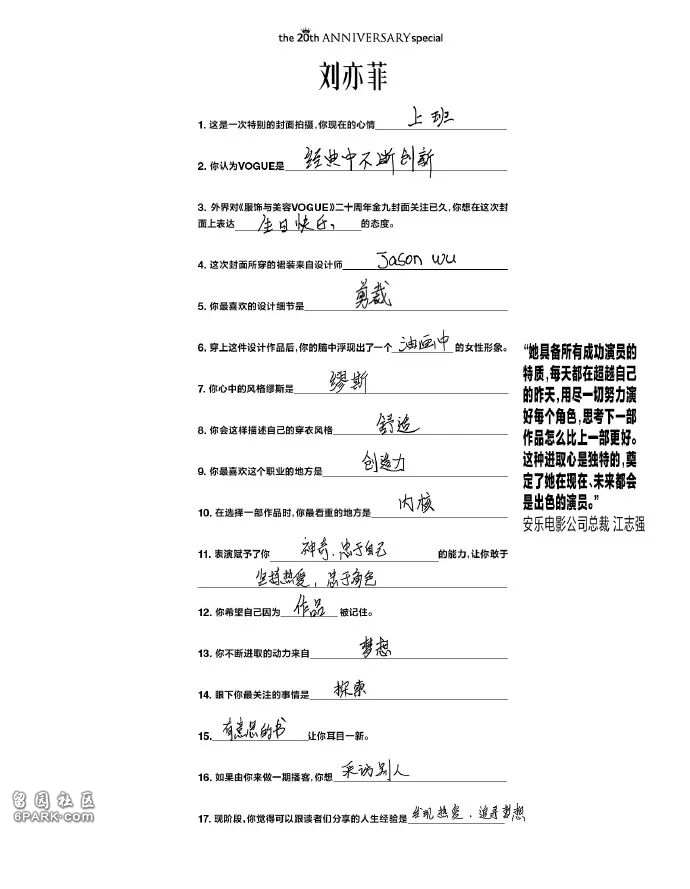 the 20th ANNIVERSARY special
刘亦菲
1. 这是一次特别的封面拍摄,你现在的心情 上班
2. 你认为VOGUE是 经典中不断创新
3. 外界对《服饰与美容VOGUE》二十周年金九封面关注已久,你想在这次封
面上表达 生日快乐, 的态度。
4. 这次封面所穿的裙装来自设计师 Jason wu
5. 你最喜欢的设计细节是 剪裁
6. 穿上这件设计作品后,你的脑中浮现出了一个 油画中 的女性形象。
7. 你心中的风格缪斯是 缪斯
8. 你会这样描述自己的穿衣风格 舒适
9. 你最喜欢这个职业的地方是 创造力
10. 在选择一部作品时,你最看重的地方是 内核
11. 表演赋予了你 神奇、忠于自己 的能力,让你敢于
坚持热爱, 忠于角色
12. 你希望自己因为 作品 被记住。
13. 你不断进取的动力来自 梦想
14. 眼下你最关注的事情是 探索
15. 有意思的书 让你耳目一新。
16. 如果由你来做一期播客,你想 采访别人
17. 现阶段,你觉得可以跟读者们分享的人生经验是 发现热爱、追寻梦想
“她具备所有成功演员的
特质,每天都在超越自己
的昨天,用尽一切努力演
好每个角色,思考下一部
作品怎么比上一部更好。
这种进取心是独特的,奠
定了她在现在、未来都会
是出色的演员。”
安乐电影公司总裁 江志强
留园社区
6PARK.com